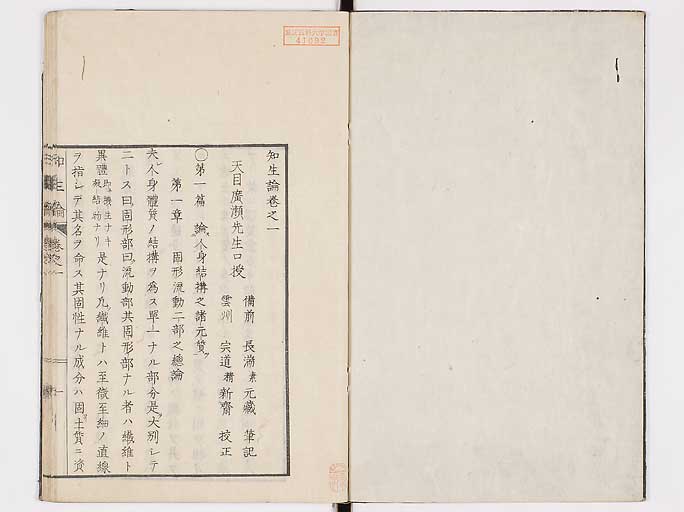 知生論卷之一
天目廣瀬先生口授
備前 長瀬素元藏 筆記
雲州 宗道精新齋 校正
○第一篇 論人身結搆之諸元質
第一章 固形流動二部之總論
夫人身體質ノ結搆ヲ爲ス單一ナル部分是大別シテ
二トス曰固形部曰流動部其固形部ナル者ハ纎維ト
異體 是ナリ凡纎維トハ至微至細ノ直線
ヲ指シテ其名ヲ命ス其固性ナル成分ハ固土質ニ資
知生論 卷之一
41092